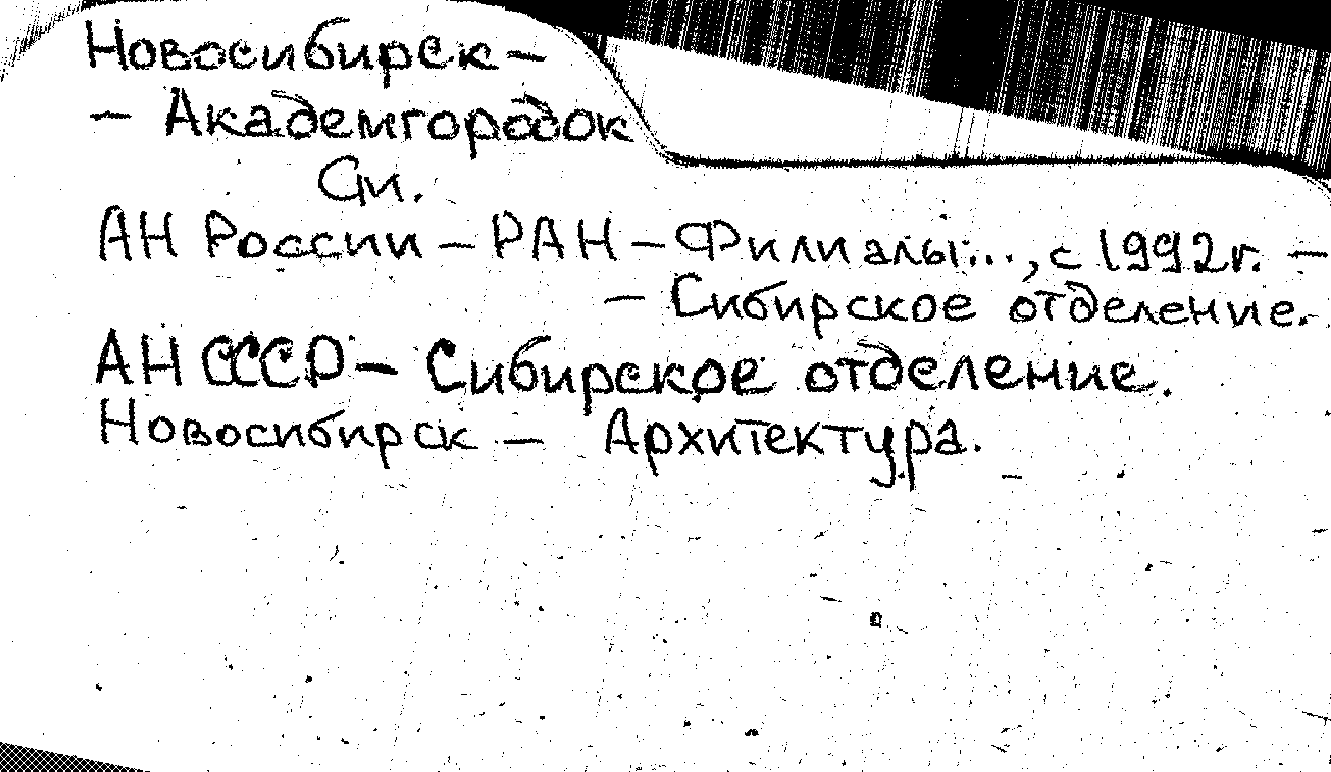 Новосибирск –
– Академгородок
См.
АН России – РАН – Филиалы..., с 1992г. –
– Сибирское отделение.
АН СССР – Сибирское отделение.
Новосибирск – Архитектура.